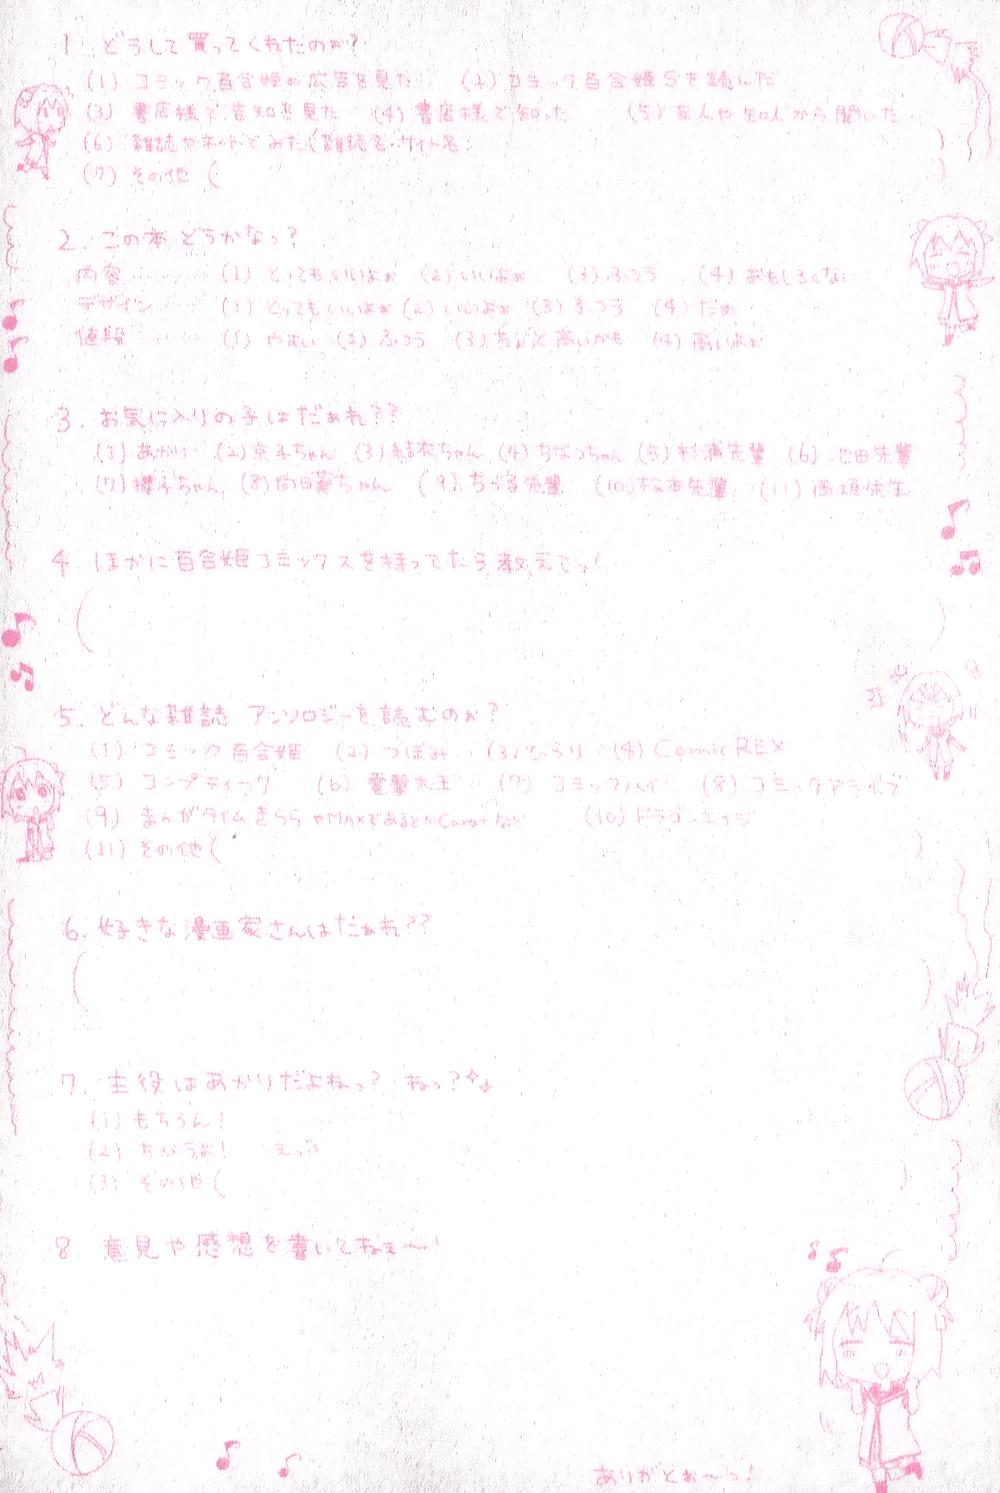 1. どうして買ってくれたのぉ?
(1) コミック百合姫の広告を見た (2) コミック百合姫Sを読んだ
(3) 書店様で告知を見た (4) 書店様で知った (5) 友人や知人から聞いた
(6) 雑誌やネットでみた(雑誌名・サイト名: )
(7) その他 ( )
2. この本どうかなっ?
内容 (1) とってもいいよぉ (2) いいよぉ (3) ふつう (4) おもしろくない
デザイン (1) とってもいいよぉ (2) いいよぉ (3) ふつう (4) だめ
値段 (1) やすい (2) ふつう (3) ちょっと高いかも (4) 高いよぉ
3. お気に入りの子はだぁれ??
(1) あかり (2) 京子ちゃん (3) 結衣ちゃん (4) ちなつちゃん (5) 杉浦先輩 (6) 池田先輩
(7) 櫻子ちゃん (8) 向日葵ちゃん (9) ちづる先輩 (10) 松本先輩 (11) 西垣先生
4 ほかに百合姫コミックスを持ってたら教えてっ!
( )
5. どんな雑誌 アンソロジーを読むのぉ?
(1) コミック百合姫 (2) つぼみ (3) ひらり (4) Comic REX
(5) コンプティーク (6) 電撃大王 (7) コミックハイ (8) コミックアライブ
(9) まんがタイムきららやMAXであるとかCaratなど (10) ドラゴンエイジ
(11) その他 ( )
6. 好きな漫画家さんはだぁれ??
( )
7. 主役はあかりだよねっ? ねっ?
(1) もちろん!
(2) ちがうよ! えっ
(3) その他 ( )
8 意見や感想を書いてねぇ〜!
ありがとぉ〜っ!